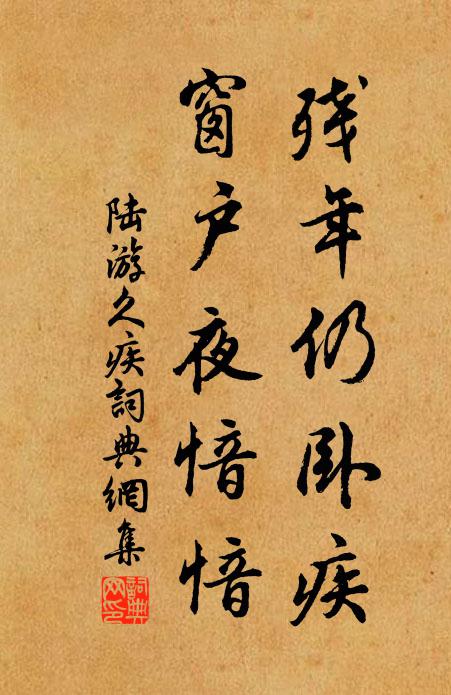 残年仍卧疾
窗户夜愔愔
陆游久疾詞典網集
詞典网印